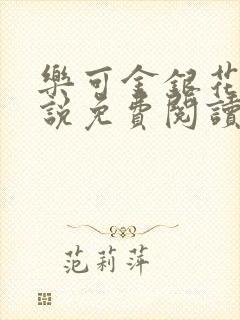 樂可金銀花
說免費閱讀
范莉萍